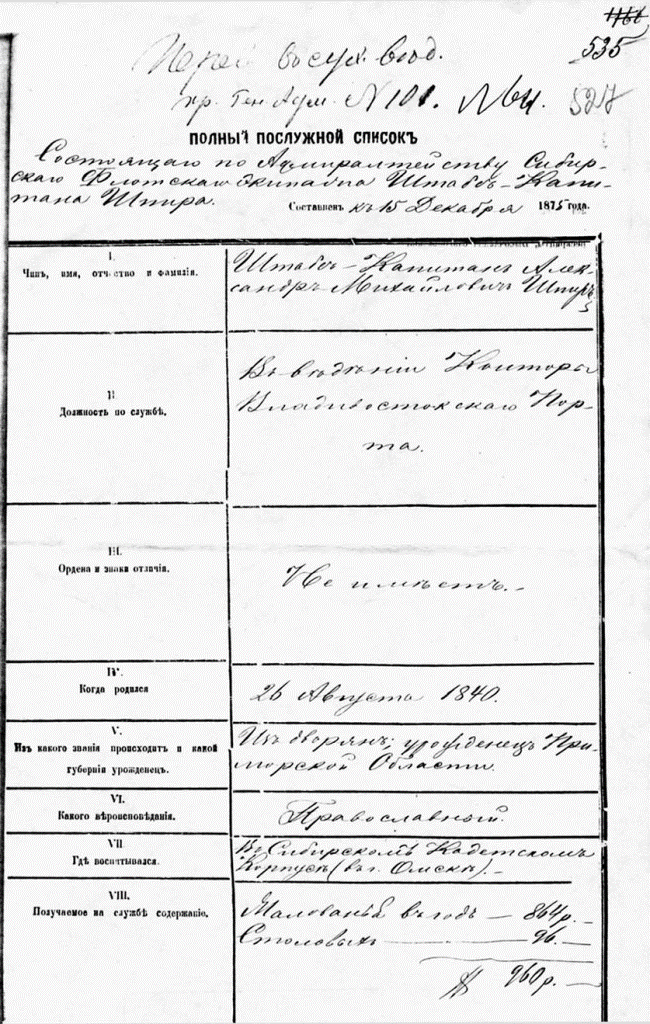 535
№ 101.
ПОЛНЫЙ ПОСЛУЖНОЙ СПИСОКЪ
Состоящаго по Адмиралтейству Сибир-
скаго Флотскаго Экипажа Штабсъ-Капи-
тана Шпира. Составленъ къ 15 Декабря 1875 года.
I.
Чинъ, имя, отчество и фамилія.
Штабсъ-Капитанъ Алек-
сандръ Михайловичъ Шпиръ
II
Должность по службѣ.
Въ вѣдѣніи Конторы
Владивостокскаго Пор-
та.
III.
Ордена и знаки отличія.
Не имѣетъ.-
IV.
Когда родился
26 Августа 1840.
V.
Изъ какого званія происходитъ и какой
губерніи урожденецъ.
Изъ дворянъ; урожденецъ При-
морской Области.
VI.
Какого вѣроисповѣданія.
Православный.
VII.
Гдѣ воспитывался.
Въ Сибирскомъ Кадетскомъ
Корпусѣ (въ г. Омскѣ).-
VIII.
Получаемое на службѣ содержаніе.
Жалованья въ годъ — 864 р. —
Столовыхъ — 96. —
960 р. —